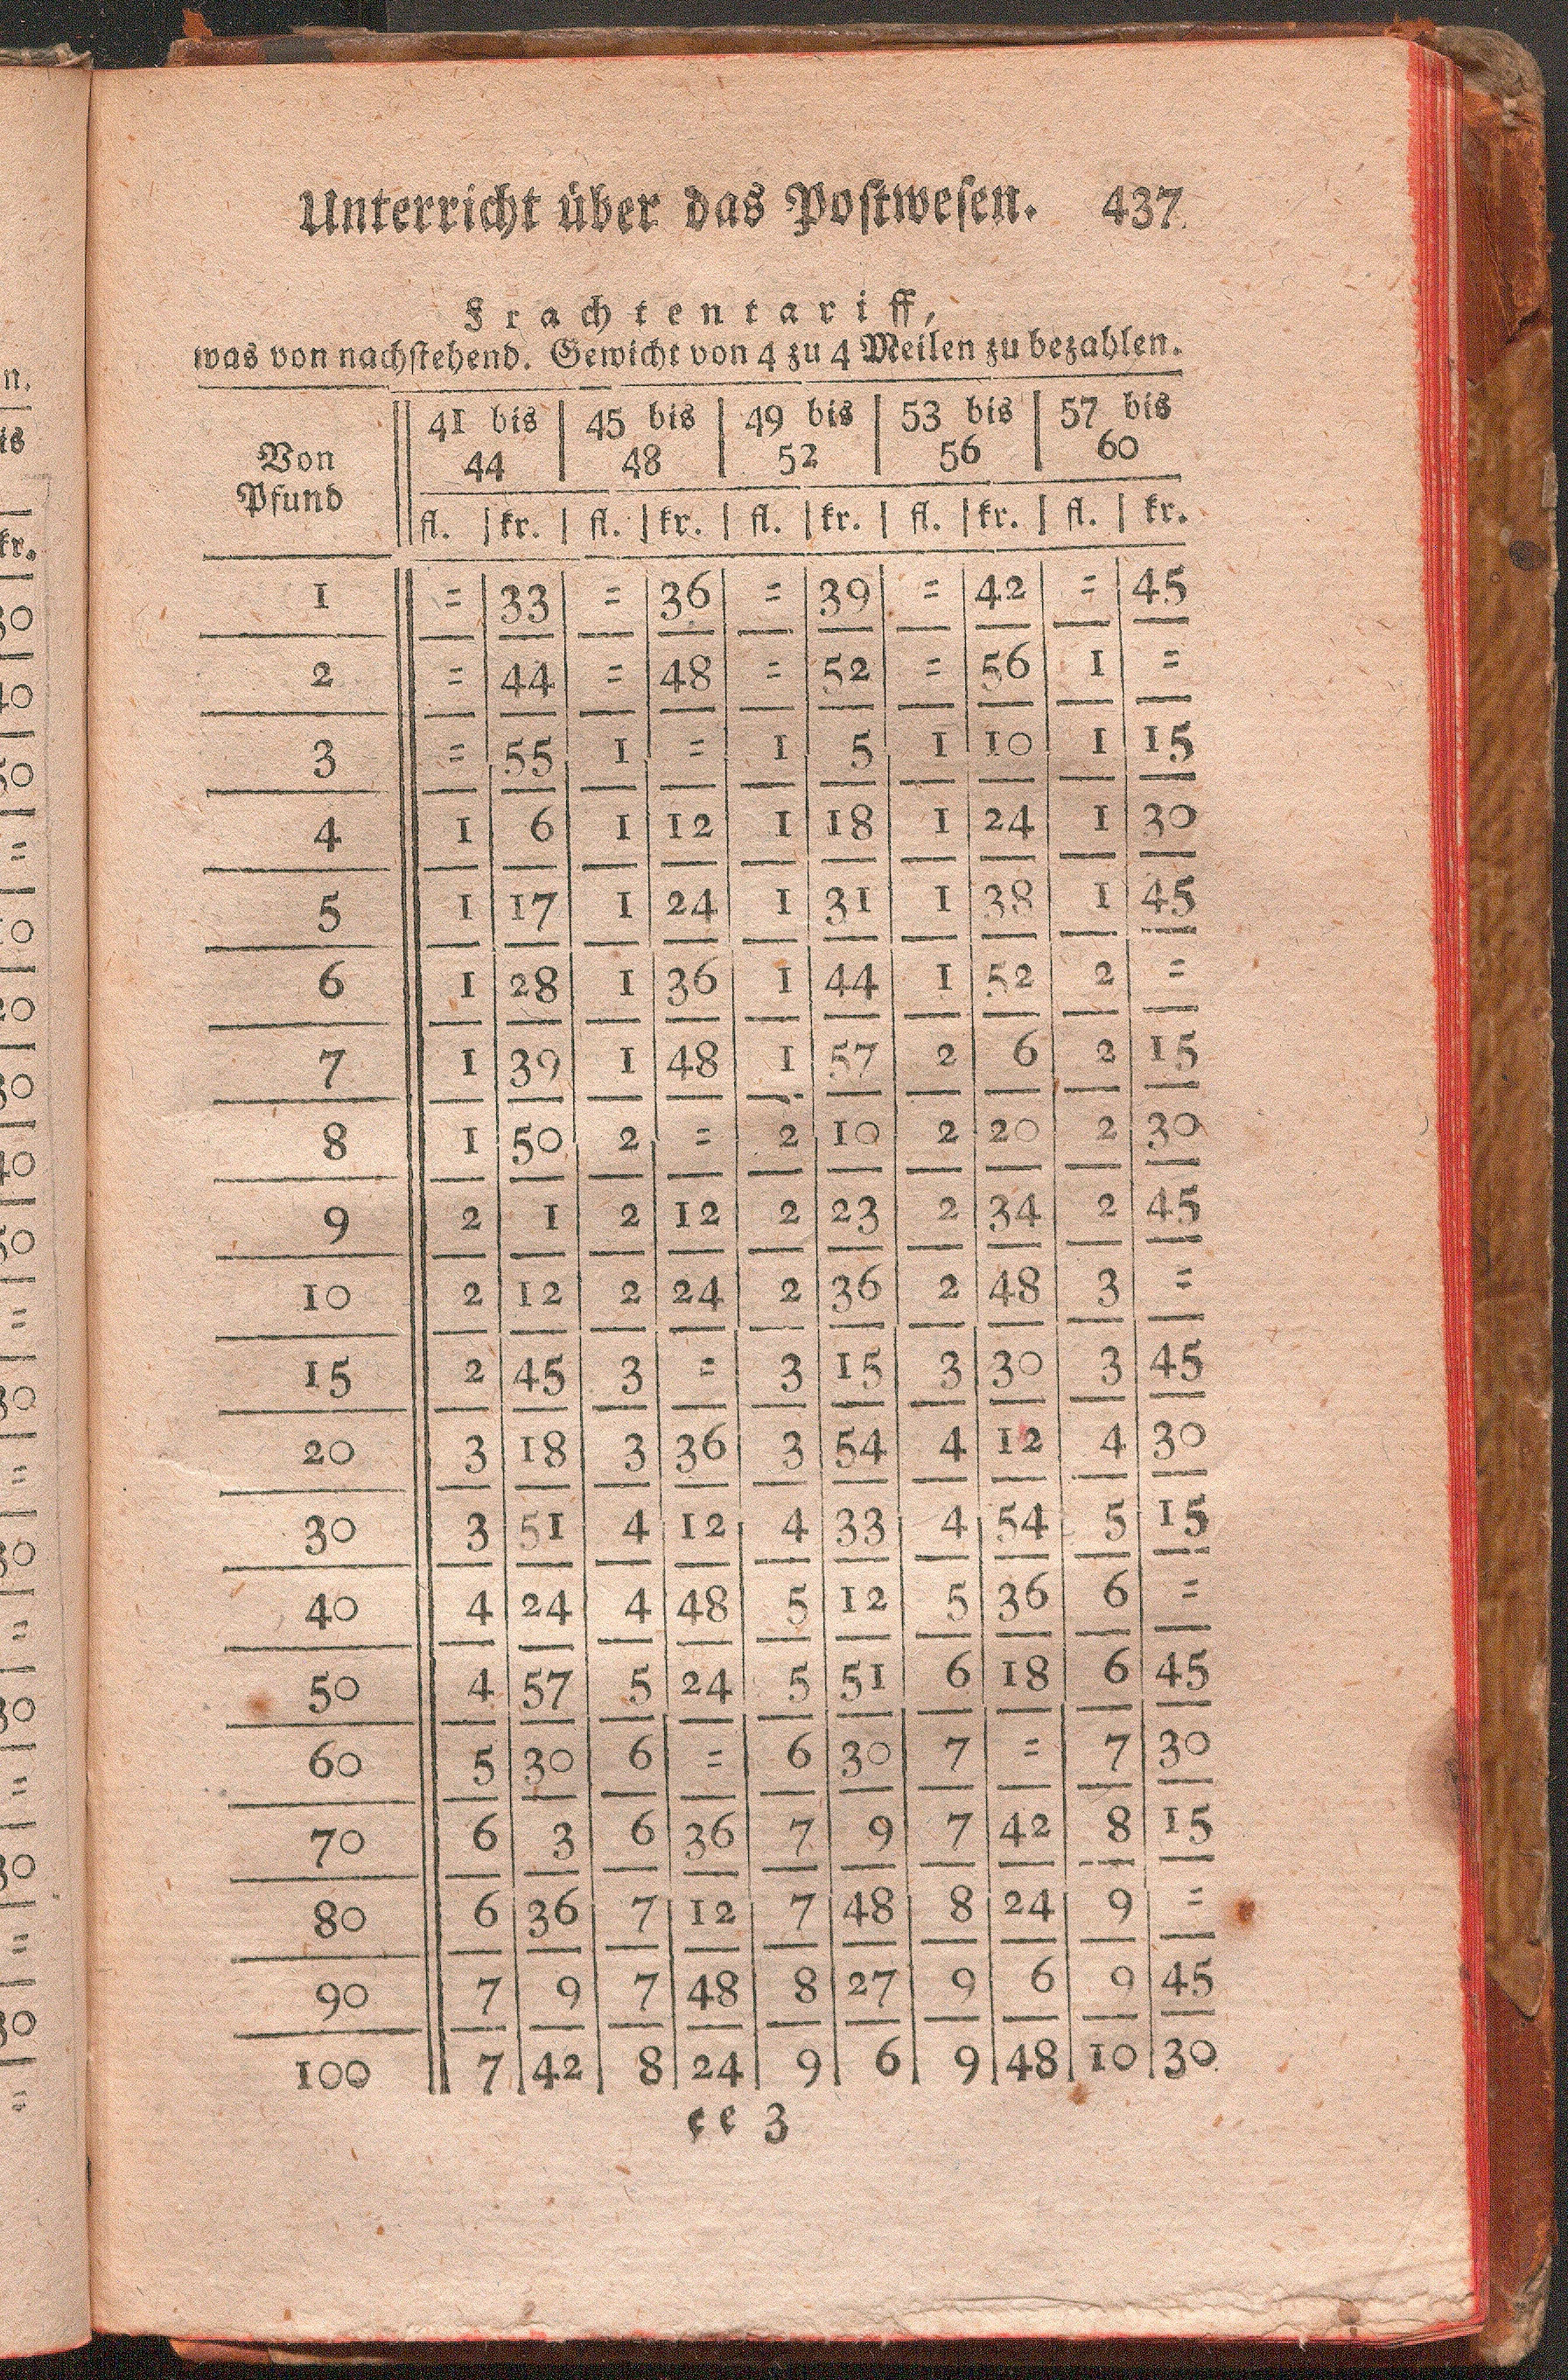 Unterricht über das Postwesen. 437
Frachtentariff,
was von nachstehend. Gewicht von 4 zu 4 Meilen zu bezahlen.
Von Pfund | 41 bis 44 | 45 bis 48 | 49 bis 52 | 53 bis 56 | 57 bis 60
fl. | kr. | fl. | kr. | fl. | kr. | fl. | kr. | fl. | kr.
1 = 33 = 36 = 39 = 42 = 45
2 = 44 = 48 = 52 = 56 1 =
3 = 55 1 = 1 5 1 10 1 15
4 1 6 1 12 1 18 1 24 1 30
5 1 17 1 24 1 31 1 38 1 45
6 1 28 1 36 1 44 1 52 2 =
7 1 39 1 48 1 57 2 6 2 15
8 1 50 2 = 2 10 2 20 2 30
9 2 1 2 12 2 23 2 34 2 45
10 2 12 2 24 2 36 2 48 3 =
15 2 45 3 = 3 15 3 30 3 45
20 3 18 3 36 3 54 4 12 4 30
30 3 51 4 12 4 33 4 54 5 15
40 4 24 4 48 5 12 5 36 6 =
50 4 57 5 24 5 51 6 18 6 45
60 5 30 6 = 6 30 7 = 7 30
70 6 3 6 36 7 9 7 42 8 15
80 6 36 7 12 7 48 8 24 9 =
90 7 9 7 48 8 27 9 6 9 45
100 7 42 8 24 9 6 9 48 10 30
ee 3